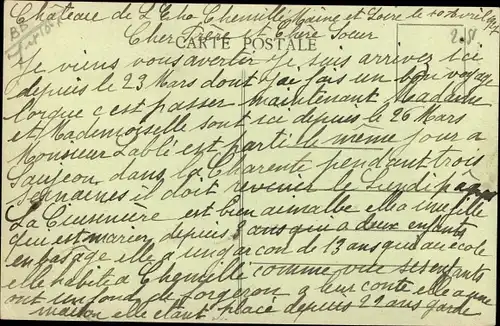 Château de L'Echo Chemillé Maine et Loire le 10 avril
Cher Frère et Chère Soeur
CARTE POSTALE
Je viens vous avertir je suis arrivez ici
depuis le 23 Mars dont j'ai fais un bon voyage
lorque c'est passer maintenant Madame
et Mademoiselle sont ici depuis le 26 Mars
Monsieur L'abbé est parti le même jour a
Saujeon dans la Charente pendant trois
semaines il doit revenir le Lundi pâques
La Cuisinière est bien aimable elle a une fille
qui est marier depuis 3 ans qui a deux enfants
en bas age elle a un garcon de 13 ans qui au école
elle habite a Chemillé comme toute ses enfants
ont un fond de forgeron a leur conte elle a une
maison elle étant placé depuis 22 ans garde